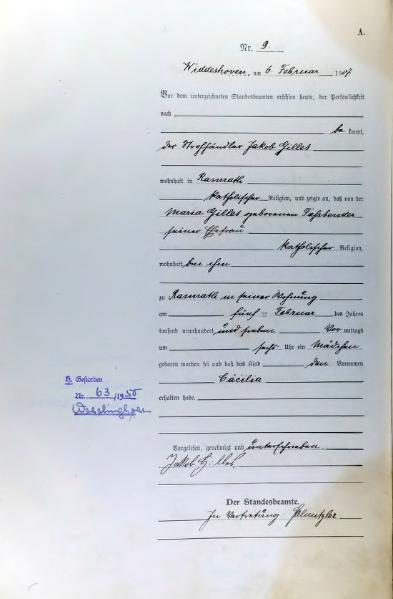 A.
Nr. 9.
Widdeshoven, am 6 Februar 1907
Vor dem unterzeichneten Standesbeamten erschien heute, der Persönlichkeit
nach
be kannt,
der Strohhändler Jakob Gilles
wohnhaft in Ramrath
katholischer Religion, und zeigte an, daß von der
Maria Gilles geborenen Faßbender
seiner Ehefrau
katholischer Religion,
wohnhaft bei ihm
zu Ramrath in seiner Wohnung
am fünf ten Februar des Jahres
tausend neunhundert und sieben Vor mittags
um sechs Uhr ein Mädchen
geboren worden sei und daß das Kind den Vornamen
Cäcilia
erhalten habe.
H. Gestorben
Nr. 63/1950
Vorgelesen, genehmigt und unterschrieben
Jakob Gilles
Der Standesbeamte.
In Vertretung